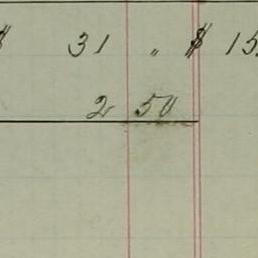 $ 31 " $ 15
2 50